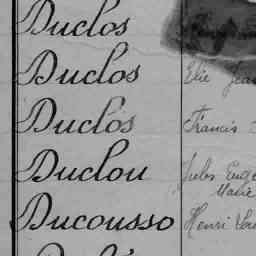 Duclos
Duclos Elie Jean
Duclos Francis
Duclou Jules Euge
Marie
Ducousso Henri Lou